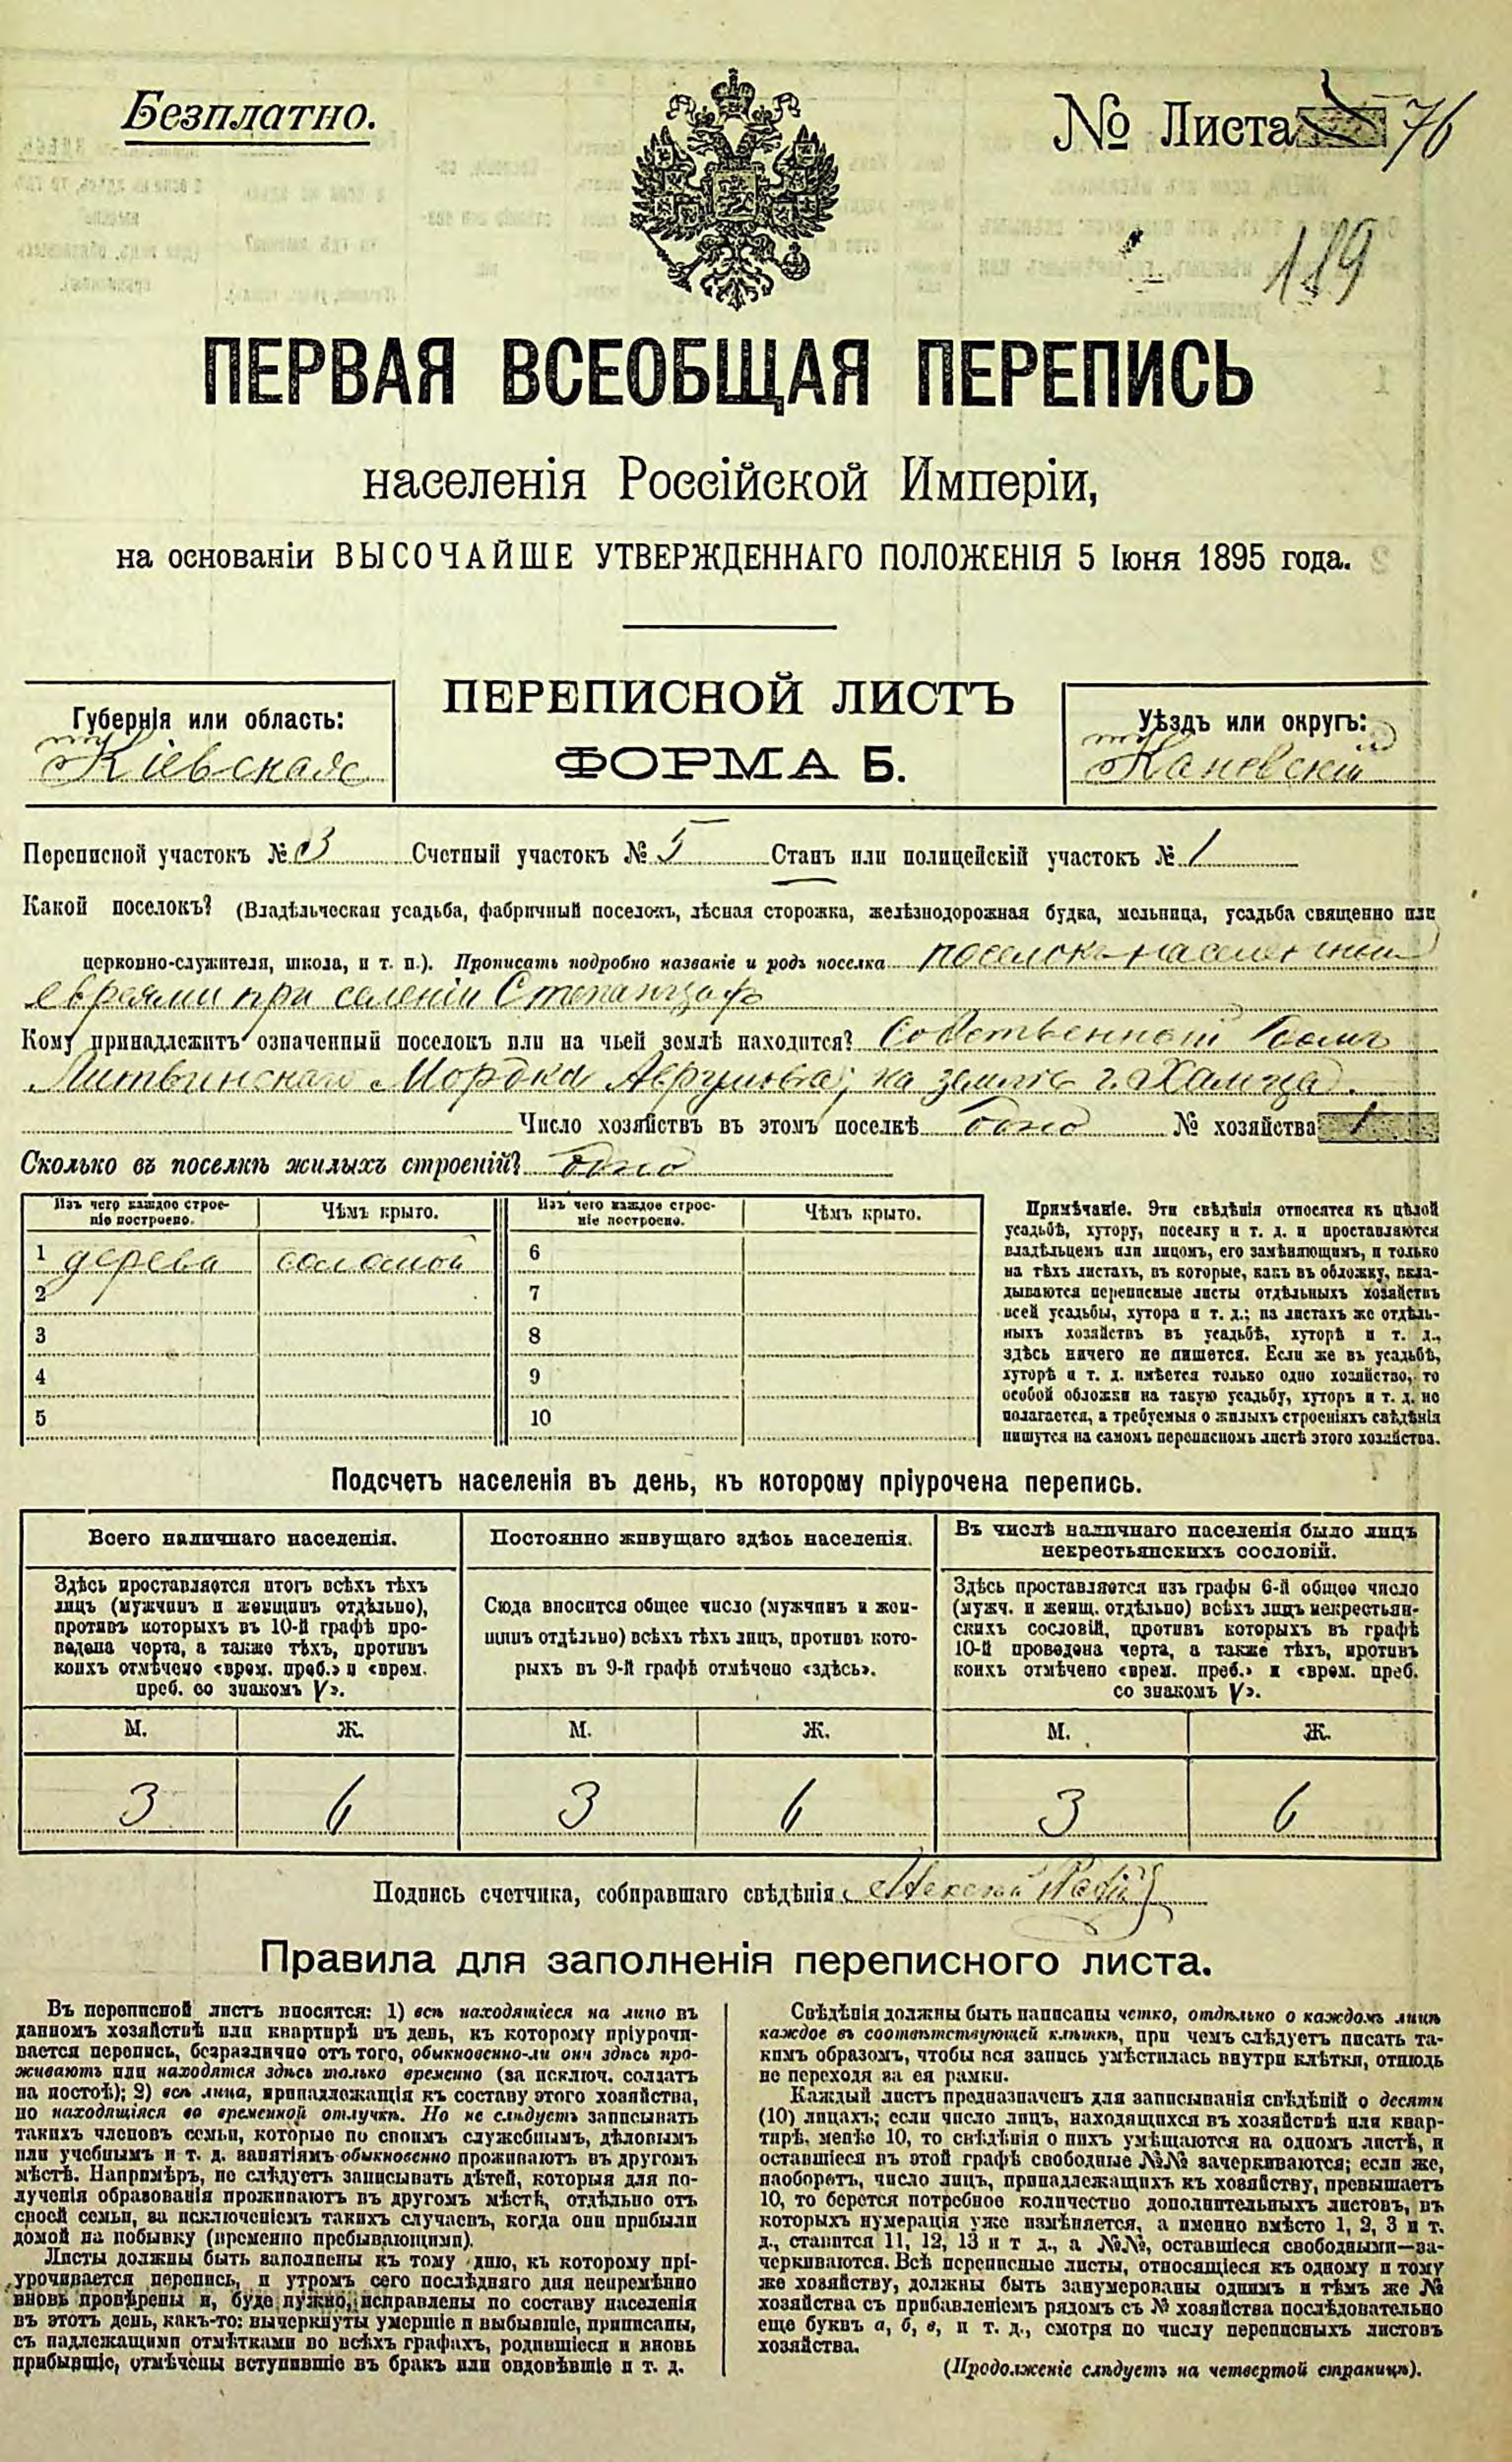 Безплатно.
№ Листа 76
189
ПЕРВАЯ ВСЕОБЩАЯ ПЕРЕПИСЬ
населенія Россійской Имперіи,
на основаніи ВЫСОЧАЙШЕ УТВЕРЖДЕННАГО ПОЛОЖЕНІЯ 5 Іюня 1895 года.
ПЕРЕПИСНОЙ ЛИСТЪ
ФОРМА Б.
Губернія или область:
Кіевская
Уѣздъ или округъ:
Каневскій
Переписной участокъ № 3 Счетный участокъ № 5 Станъ или полицейскій участокъ № 1
Какой поселокъ? (Владѣльческая усадьба, фабричный поселокъ, лѣсная сторожка, желѣзнодорожная будка, мельница, усадьба священно или
церковно-служителя, школа, и т. п.). Прописать подробно названіе и родъ поселка поселокъ населенный
евреями при селеніи Степанцахъ
Кому принадлежитъ означенный поселокъ или на чьей землѣ находится? Собственный домъ
Литвинскаго Мордка Аврумова; на землѣ г.
Число хозяйствъ въ этомъ поселкѣ одно № хозяйства 1
Сколько въ поселкѣ жилыхъ строеній? одно
Изъ чего каждое строе-
ніе построено.
Чѣмъ крыто.
Изъ чего каждое строе-
ніе построено.
Чѣмъ крыто.
1 дерева соломой 6
2 7
3 8
4 9
5 10
Примѣчаніе. Эти свѣдѣнія относятся къ цѣлой
усадьбѣ, хутору, поселку и т. д. и проставляются
владѣльцемъ или лицомъ, его замѣняющимъ, и только
на тѣхъ листахъ, въ которые, какъ въ обложку, вкла-
дываются переписные листы отдѣльныхъ хозяйствъ
всей усадьбы, хутора и т. д.; на листахъ же отдѣль-
ныхъ хозяйствъ въ усадьбѣ, хуторѣ и т. д.,
здѣсь ничего не пишется. Если же въ усадьбѣ,
хуторѣ и т. д. имѣется только одно хозяйство, то
особой обложки на такую усадьбу, хуторъ и т. д. не
полагается, а требуемыя о жилыхъ строеніяхъ свѣдѣнія
пишутся на самомъ переписномъ листѣ этого хозяйства.
Подсчетъ населенія въ день, къ которому пріурочена перепись.
Всего наличнаго населенія.
Здѣсь проставляется итогъ всѣхъ тѣхъ
лицъ (мужчинъ и женщинъ отдѣльно),
противъ которыхъ въ 10-й графѣ про-
ведена черта, а также тѣхъ, противъ
коихъ отмѣчено «врем. преб.» и «врем.
преб. со знакомъ V».
М. Ж.
3 6
Постоянно живущаго здѣсь населенія.
Сюда вносится общее число (мужчинъ и жен-
щинъ отдѣльно) всѣхъ тѣхъ лицъ, противъ кото-
рыхъ въ 9-й графѣ отмѣчено «здѣсь».
М. Ж.
3 6
Въ числѣ наличнаго населенія было лицъ
некрестьянскихъ сословій.
Здѣсь проставляется изъ графы 6-й общее число
(мужч. и женщ. отдѣльно) всѣхъ лицъ некрестьян-
скихъ сословій, противъ которыхъ въ графѣ
10-й проведена черта, а также тѣхъ, противъ
коихъ отмѣчено «врем. преб.» и «врем. преб.
со знакомъ V».
М. Ж.
3 6
Подпись счетчика, собиравшаго свѣдѣнія
Правила для заполненія переписного листа.
Въ переписной листъ вносятся: 1) всѣ находящіеся на лицо въ
данномъ хозяйствѣ или квартирѣ въ день, къ которому пріурочи-
вается перепись, безразлично отъ того, обыкновенно-ли они здѣсь про-
живаютъ или находятся здѣсь только временно (за исключ. солдатъ
на постоѣ); 2) всѣ лица, принадлежащія къ составу этого хозяйства,
но находящіяся во временной отлучкѣ. Но не слѣдуетъ записывать
такихъ членовъ семьи, которые по своимъ служебнымъ, дѣловымъ
или учебнымъ и т. д. занятіямъ обыкновенно проживаютъ въ другомъ
мѣстѣ. Напримѣръ, не слѣдуетъ записывать дѣтей, которыя для по-
лученія образованія проживаютъ въ другомъ мѣстѣ, отдѣльно отъ
своей семьи, за исключеніемъ такихъ случаевъ, когда они прибыли
домой на побывку (временно пребывающими).
Листы должны быть заполнены къ тому дню, къ которому прі-
урочивается перепись, и утромъ сего послѣдняго дня непремѣнно
вновь провѣрены и, буде нужно, исправлены по составу населенія
въ этотъ день, какъ-то: вычеркнуты умершіе и выбывшіе, приписаны,
съ надлежащими отмѣтками во всѣхъ графахъ, родившіеся и вновь
прибывшіе, отмѣчены вступившіе въ бракъ или овдовѣвшіе и т. д.
Свѣдѣнія должны быть написаны четко, отдѣльно о каждомъ лицѣ
каждое въ соотвѣтствующей клѣткѣ, при чемъ слѣдуетъ писать та-
кимъ образомъ, чтобы вся запись умѣстилась внутри клѣтки, отнюдь
не переходя за ея рамки.
Каждый листъ предназначенъ для записыванія свѣдѣній о десяти
(10) лицахъ; если число лицъ, находящихся въ хозяйствѣ или квар-
тирѣ, менѣе 10, то свѣдѣнія о нихъ умѣщаются на одномъ листѣ, и
оставшіеся въ этой графѣ свободные №№ зачеркиваются; если же,
наоборотъ, число лицъ, принадлежащихъ къ хозяйству, превышаетъ
10, то берется потребное количество дополнительныхъ листовъ, въ
которыхъ нумерація уже измѣняется, а именно вмѣсто 1, 2, 3 и т.
д., ставится 11, 12, 13 и т д., а №№, оставшіеся свободными—за-
черкиваются. Всѣ переписные листы, относящіеся къ одному и тому
же хозяйству, должны быть занумерованы однимъ и тѣмъ же №
хозяйства съ прибавленіемъ рядомъ съ № хозяйства послѣдовательно
еще буквъ а, б, в, и т. д., смотря по числу переписныхъ листовъ
хозяйства.
(Продолженіе слѣдуетъ на четвертой страницѣ).